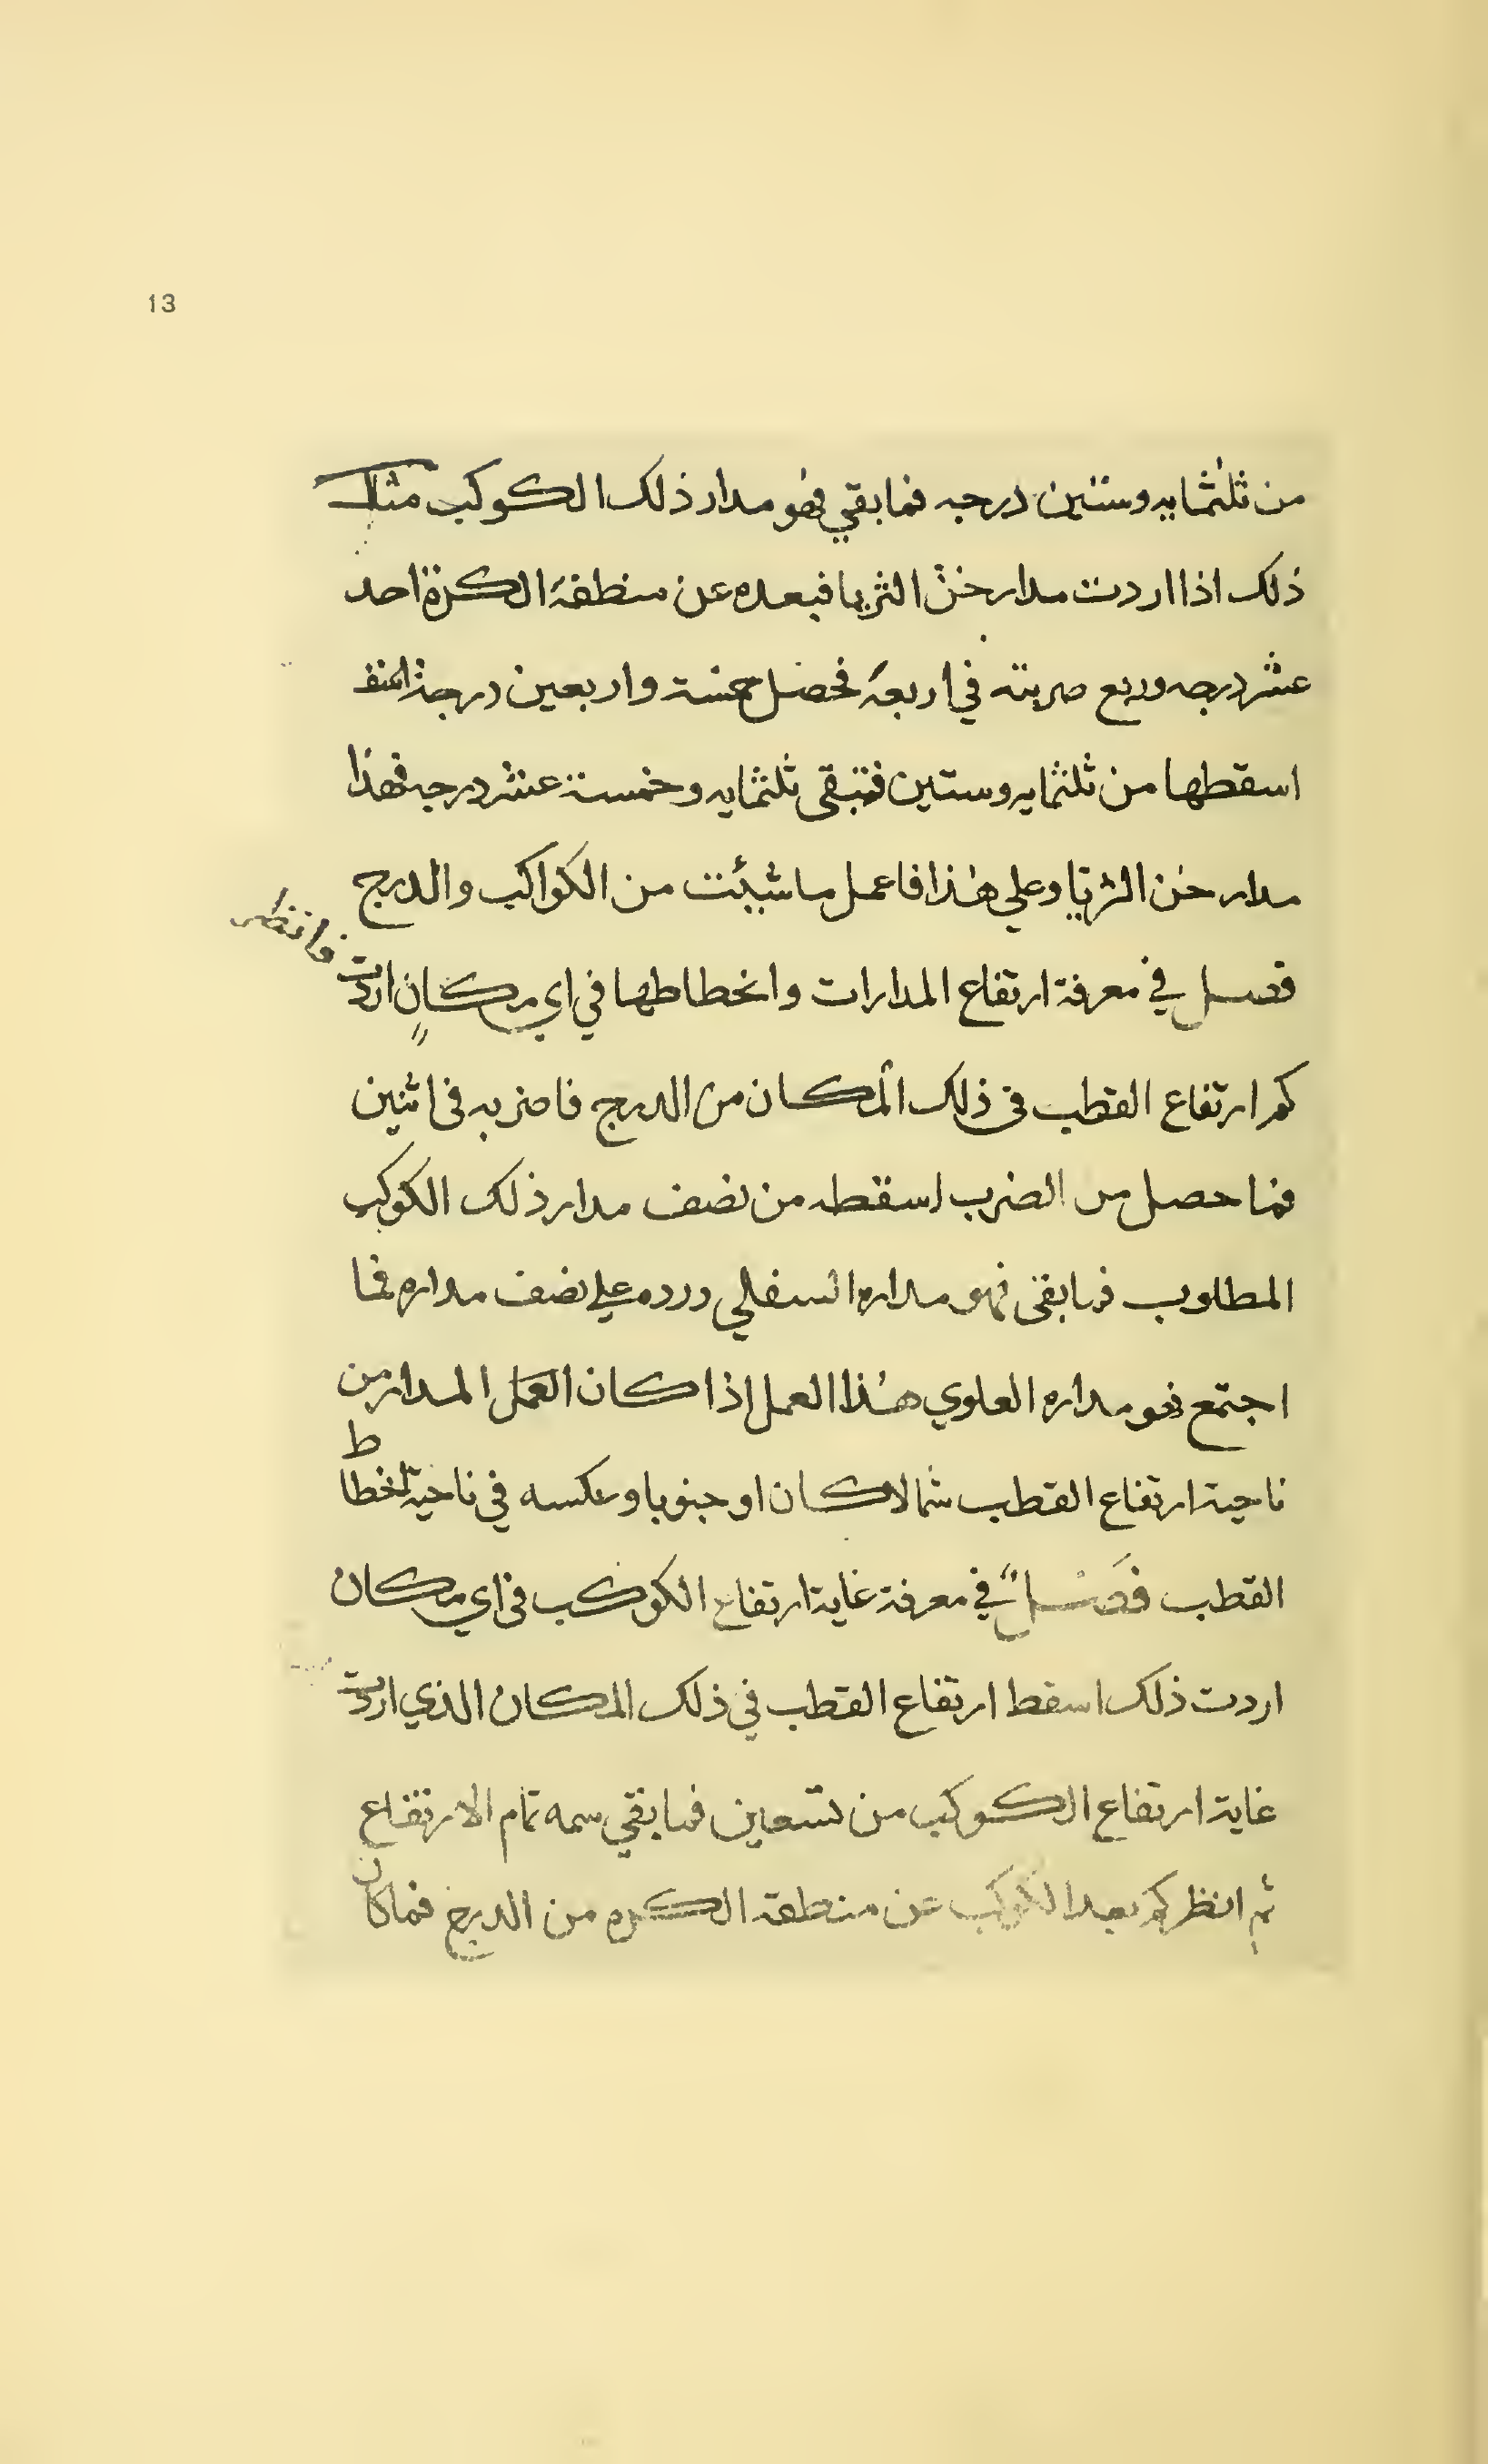 13
من ثلثمايه وستين درجه فما بقي فهو مدار ذلك الكوكب مثال
ذلك اذا اردت مدار خن الثريا فبعده عن منطقة الكرة احد
عشر درجه وربع ضربته في اربعة فحصل خمسة واربعين درجة
اسقطها من ثلثمايه وستين فتبقى ثلثمايه وخمسة عشر درجه فهذا
مدار خن الثريا وعلي هذا فاعمل ما شيئت من الكواكب والدرج
فصل في معرفة ارتفاع المدارات وانحطاطها في اي مكانٍ اردت فانظر
كم ارتفاع القطب في ذلك المكان من الدرج فاضربه في اثنين
فما حصل من الضرب اسقطه من نصف مدار ذلك الكوكب
المطلوب فما بقى فهو مداره السفلي وزده علي نصف مداره فما
اجتمع فهو مداره العلوي هذا العمل اذا كان العمل المدار من
ناحية ارتفاع القطب شمالا كان او جنوبا وعكسه في ناحية انحطاط
القطب فصلٌ في معرفة غاية ارتفاع الكوكب في اي مكان
اردت ذلك اسقط ارتفاع القطب في ذلك المكان الذي اردت
غاية ارتفاع الكوكب من تسعين فما بقي سمه تمام الارتفاع
ثم انظر كم بعد الكوكب عن منطقة الكره من الدرج فما كان